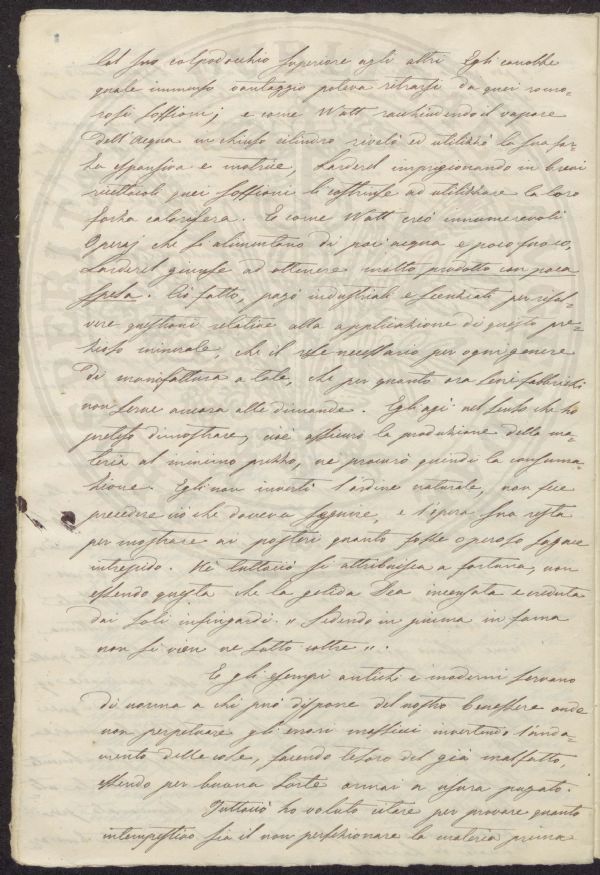 Col suo colpodocchio superiore agli altri Egli conobbe
quale immenso vantaggio poteva ritrarsi da quei romo-
rosi soffioni; e come Watt racchiudendo il vapore
dell'Acqua in chiuso cilindro rivelò ed utilizzò la sua for-
za espansiva e motrice, Larderel imprigionando in brevi
ricettacoli quei soffioni li costrinse ad utilizzare la loro
forza calorifera. E come Watt creò innumerevoli
Operaj che si alimentano di poc'acqua e poco fuoco,
Larderel giunse ad ottenere molto prodotto con poca
spesa. Ciò fatto, pagò industriali e scenziati per risol-
vere questioni relative alla applicazione di questo pre-
zioso minerale, che il rese necessario per ogni genere
di manifattura a tale, che per quanto ora se ne fabbrichi
non serve ancora alle dimande. Egli agì nel senso che ho
preteso dimostrare, cioè assicurò la produzione della ma-
teria al minimo prezzo, ne procurò quindi la consuma-
zione. Egli non invertì l'ordine naturale, non fece
precedere ciò che doveva seguire, e l'opera sua resta
per mostrare ai posteri quanto fosse operoso sagace
intrepido. Nè tuttociò si attribuisca a fortuna, non
essendo questa che la gelida Dea incensata e creduta
dai soli infingardi. " Sedendo in piuma in fama
non si vien ne sotto coltre ".
E gli esempi antichi e moderni servano
di norma a chi può disporre del nostro benessere onde
non perpetuare gli errori massicci invertendo l'anda-
mento delle cose, facendo tesoro del già malfatto,
essendo per buona sorte ormai a usura pagato.
Tuttociò ho voluto citare per provare quanto
intempestivo sia il non perfezionare la materia prima